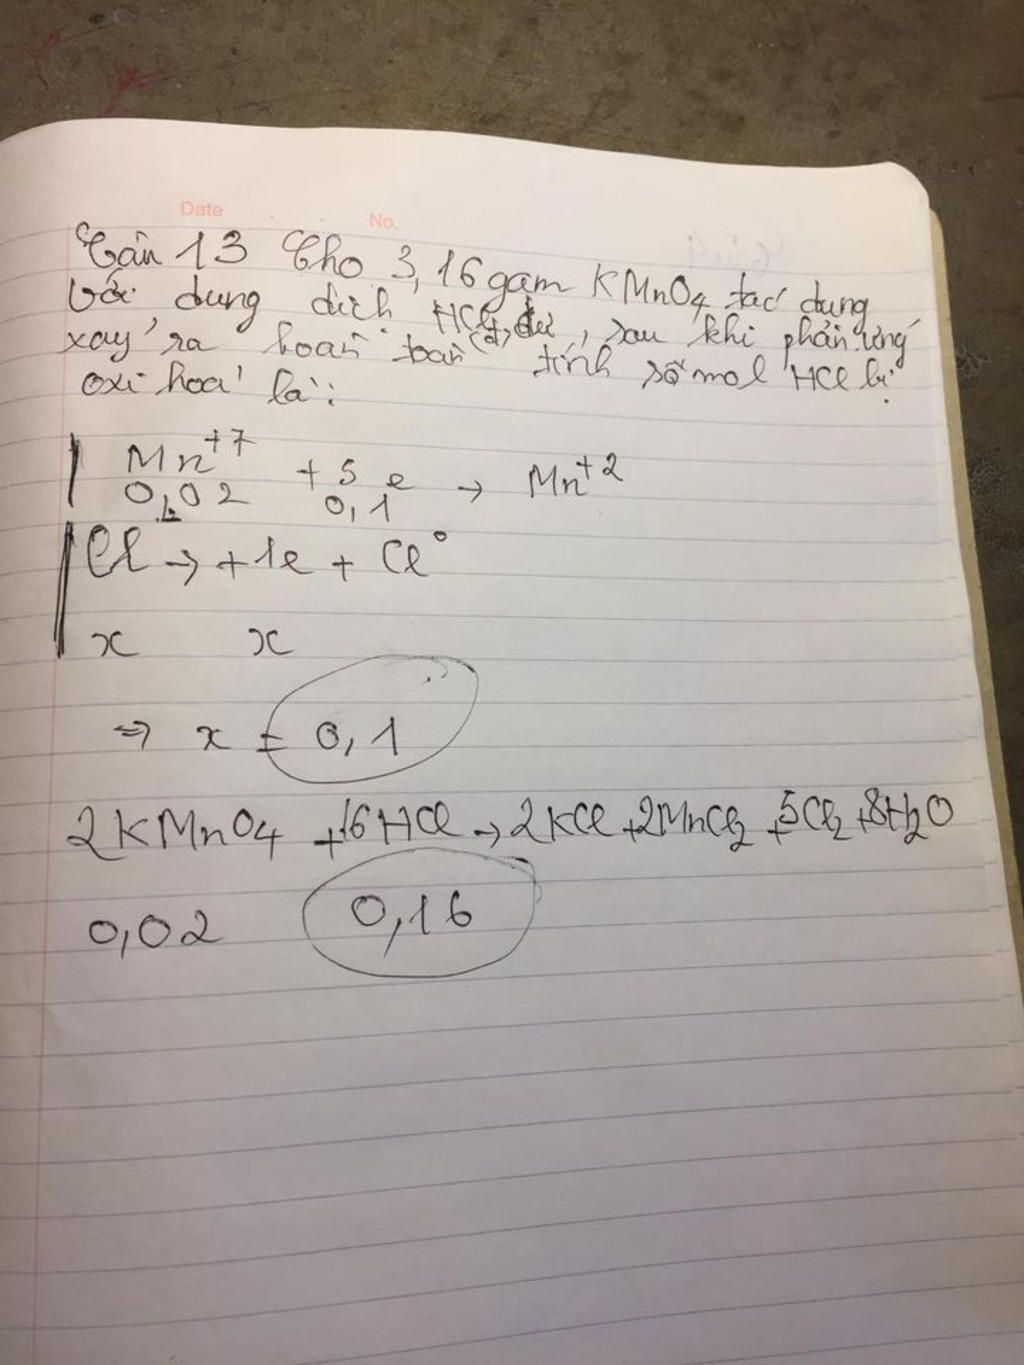 Date No.
Câu 13 Cho 3,16 gam KMnO4 tác dụng
với dung dịch HCl (đ), dư, sau khi phản ứng
xảy ra hoàn toàn tính số mol HCl bị
oxi hoá là:
Mn+7 + 5e → Mn+2
0,02 0,1
Cl → +1e + Cl°
x x
⇒ x = 0,1
2KMnO4 + 16HCl → 2KCl + 2MnCl2 + 5Cl2 + 8H2O
0,02 0,16